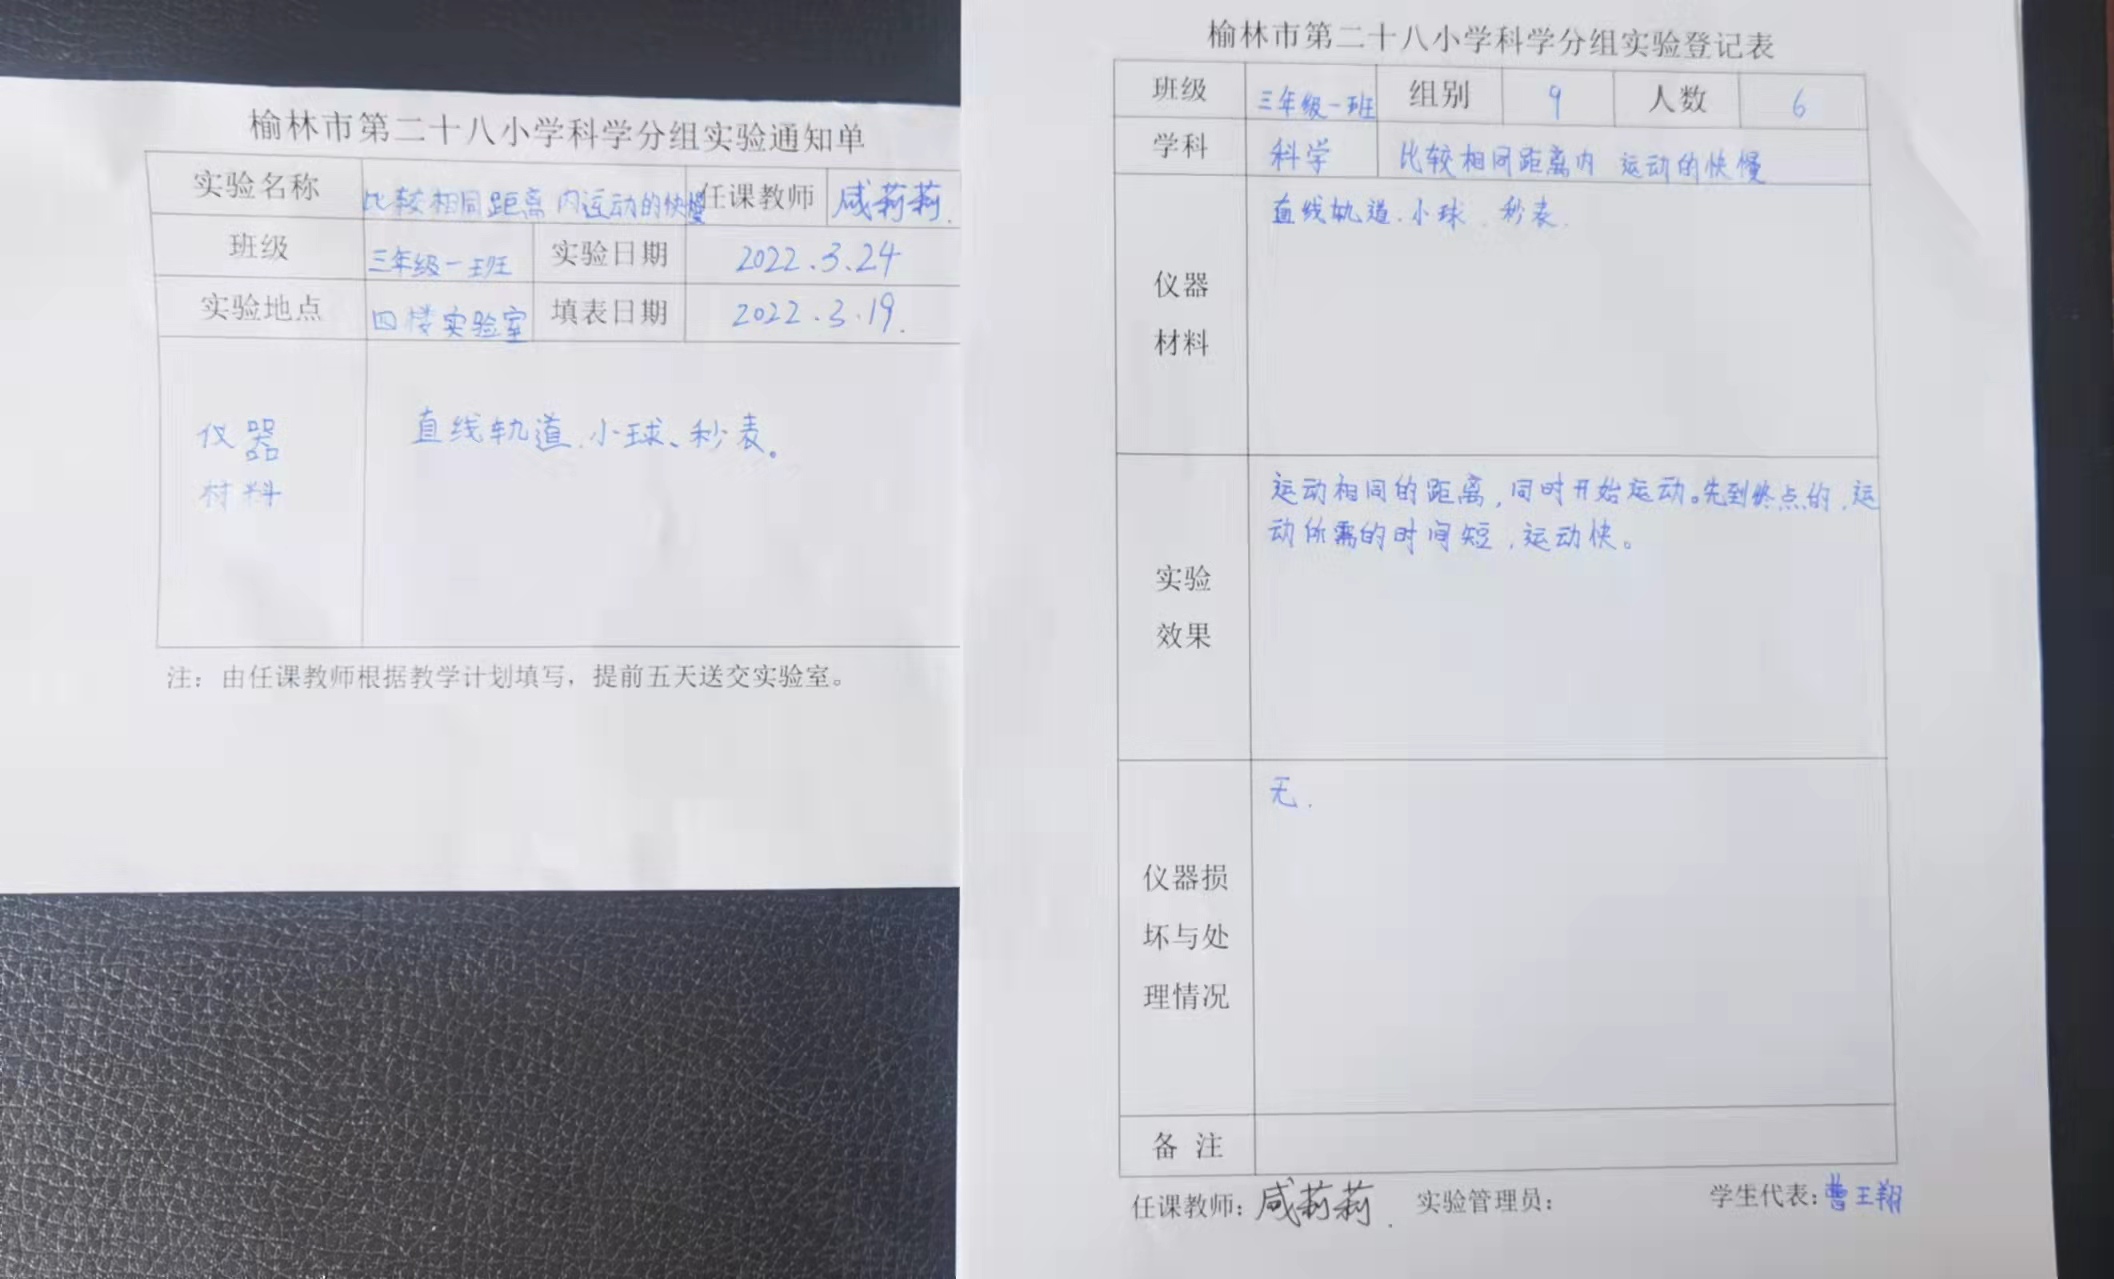 榆林市第二十八小学科学分组实验通知单
实验名称 比较相同距离内运动的快慢 任课教师 咸莉莉.
班级 三年级一班 实验日期 2022.3.24
实验地点 四楼实验室 填表日期 2022.3.19.
仪器 直线轨道、小球、秒表。
材料
注：由任课教师根据教学计划填写，提前五天送交实验室。
榆林市第二十八小学科学分组实验登记表
班级 三年级一班 组别 9 人数 6
学科 科学 比较相同距离内 运动的快慢
直线轨道.小球.秒表.
仪器
材料
运动相同的距离，同时开始运动。先到终点的，运
动所需的时间短，运动快。
实验
效果
无.
仪器损
坏与处
理情况
备 注
任课教师：咸莉莉. 实验管理员： 学生代表：曹王翔